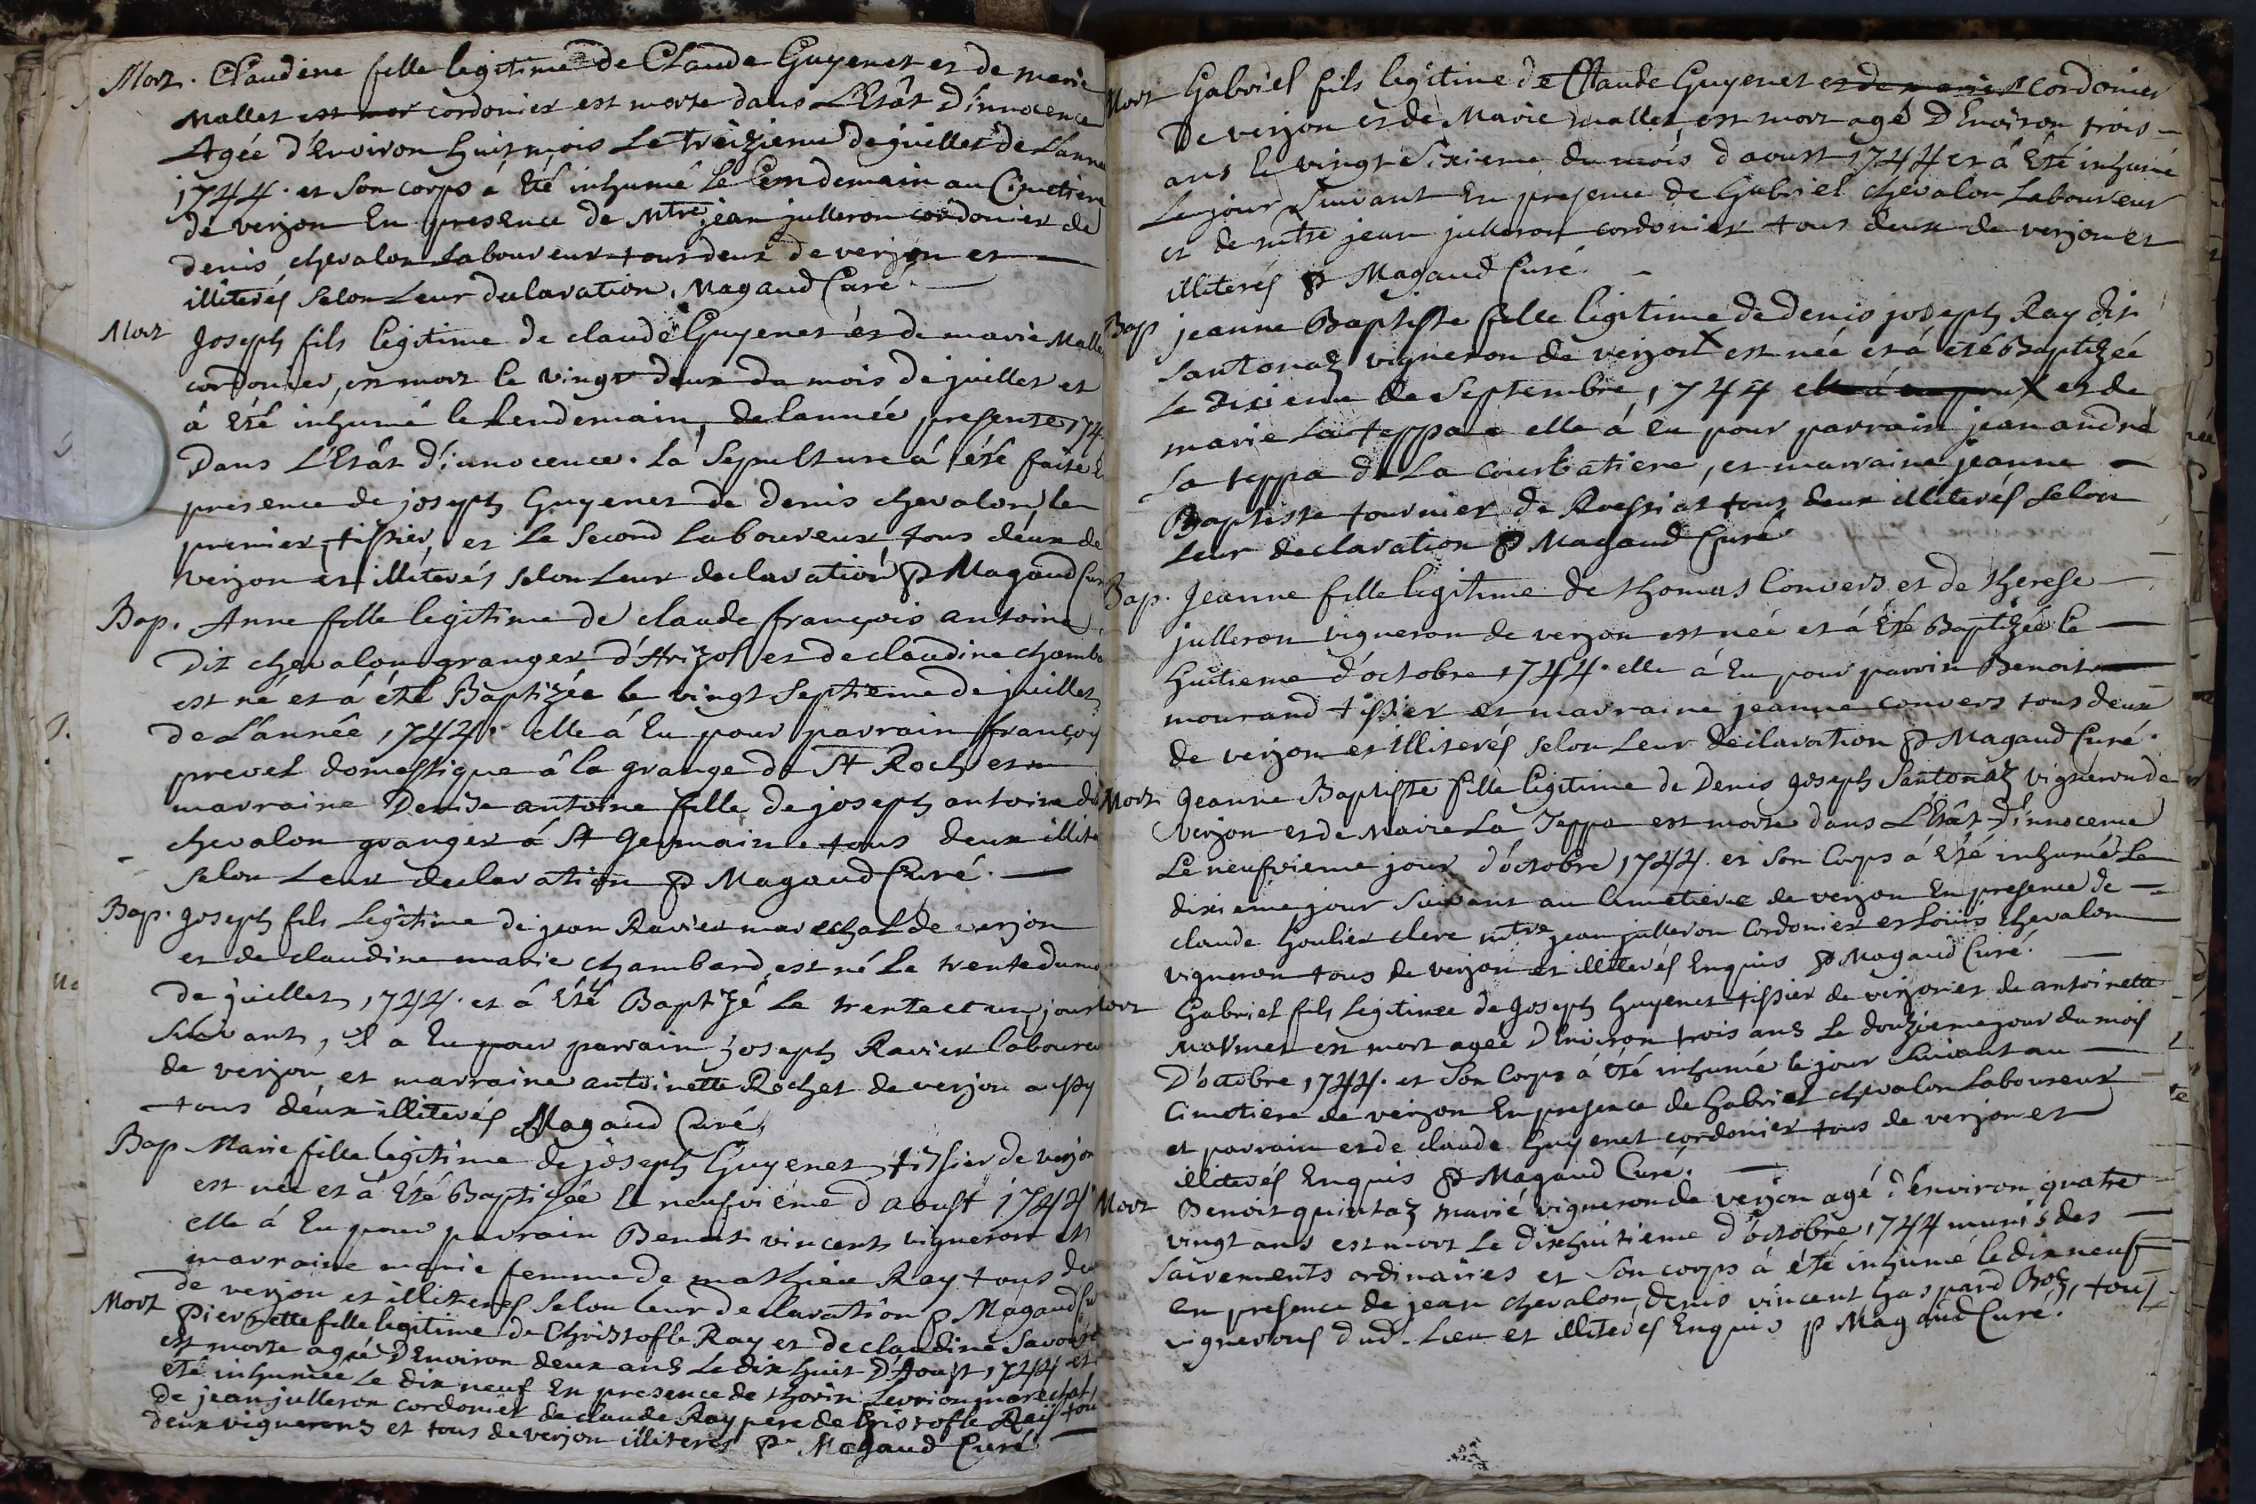 Mort. Claudine fille legitime de Claude Guyenet et de marie
Mallet est mor cordonier est morte dans L'Etât D'innocence
Agée d'Environ huit mois Le treizieme de juillet de L'annee
1744. et son corps á Eté inhumé Le Lendemain au Cimetiere
de verjon En presence de Mtre jean julleron cordonier de
denis chevalon Laboureur tous deux de verjon et
illiterés selon Leur declaration. Magaud Curé.
Mort Joseph fils legitime de claude Guyenet et de marie Malle
cordonier, est mort le vingt deux du mois de juillet et
á Eté inhumé le Lendemain, de lannée presente 174
Dans L'Etât d'innocence. La Sepulture á été faite E
presence de joseph Guyenet de denis chevalon, le
premier tissier, et Le Second Laboureur tous deux de
verjon et illiterés selon Leur declaration p Magaud Cur
Bap. Anne fille legitime de claude françois antoine
Dit chevalon granger d'Arizol et de claudine chamba
est né et á été Baptizée le vingt septieme de juillet
de L'année 1744. elle á Eu pour parrain françoy
prevel domestique â la grange de St Roch et
marraine Denise antoine fille de joseph antoine di
chevalon granger á St Germain tous deux illite
selon Leur declaration p Magaud Curé.
Bap. joseph fils legitime de jean Ravier marechal de verjon
et de claudine marie chambard est né Le trente du mo
de juillet 1744. et á Eté Baptizé Le trente et un jour
suivant, il a Eu pour parrain joseph Ravier laboureu
de verjon et marraine antoinette Rochet de verjon aussy
tous deux illiterés Magaud Curé,
Bap Marie fille legitime de joseph Guyenet tissier de verjon
est née et á Eté Baptisée Le neufvieme d aoust 1744
elle á Eu pour parrain Benoit vincent vigneron et
marraine marie femme de mathieu Ray tous deu
de verjon et illiterés selon leur declaration p Magaud Cu
Mort Pierrette fille legitime de Christofle Ray et de claudine Savour
est morte agée D'Environ deux ans Le dix huit D'Aoust 1744 et
eté inhumée Le dix neuf En presence de marechal,
de jean julleron cordonier de claude Ray pere de Cristofle Raÿ tou
deux vignerons et tous de verjon illiteres p. Magaud Curé
Mort Gabriel fils legitime de Claude Guyenet et de marie cordonier
De verjon et de Marie mallet, est mort agé D'Environ trois
ans le vingt Sixieme du mois d aoust 1744 et á Eté inhumé
Le jour Suivant En presence de Gabriel chevalon Laboureur
et de mtre jean julleron cordonier tous deux de verjon et
illiterés p Magaud Curé.
Bap jeanne Baptiste fille legitime de denis joseph Ray dit
Santonaz vigneron de verjon X est née et á eté Baptizée
Le dixieme de Septembre, 1744 elle á eu pour X et de
marie La teppa elle á Eu pour parrain jean andré
La teppa de La Courbatiere, et marraine jeanne
Baptiste tournier de Roessiat tous deux illiterés selon
Leur declaration p Magaud Curé
Bap. Jeanne fille legitime de thomas Convers et de therese
julleron vigneron de verjon est née et á Eté Baptizée le
huitieme d'octobre 1744. elle á Eu pour parrin Benoit
mourand tissier et marraine jeanne convers tous deux
de verjon et Illiterés selon Leur declaration p Magaud Curé.
Mort Jeanne Baptiste fille legitime de Denis joseph Santonaz vigneron de
verjon et de Marie La Teppa est morte dans L'Etât D'innocence
Le neufvieme jour d'octobre 1744. et Son Corps á Eté inhumé Le
dixieme jour Suivant au Cimetiere de verjon En presence de
claude Goulier clerc mtre jean julleron Cordonier et Loüis chevalon
vigneron tous de verjon et illiterés Enquis p Magaud Curé.
Mort Gabriel fils legitimee de Joseph Guyenet tissier de verjon et de antoinette
est mort agée D'Environ trois ans Le douzieme jour du mois
D'octobre 1744. et Son Corps á été inhumé le jour Suivant au
Cimetiere de verjon En presence de Gabriel chevalon Laboureur
et parrain et de claude Guyenet cordonier tous de verjon et
illiterés Enquis p Magaud Curé.
Mort Benoit quintaz marié vigneron de verjon agé d'environ quatre
vingt ans est mort Le dixhuitieme d'octobre 1744 munis des
Sacrements ordinaires et Son corps á été inhumé le dix neuf
en presence de jean chevalon, denis vincent Gaspard tous
vignerons dud. Lieu et illiterés Enquis p Magaud Curé.